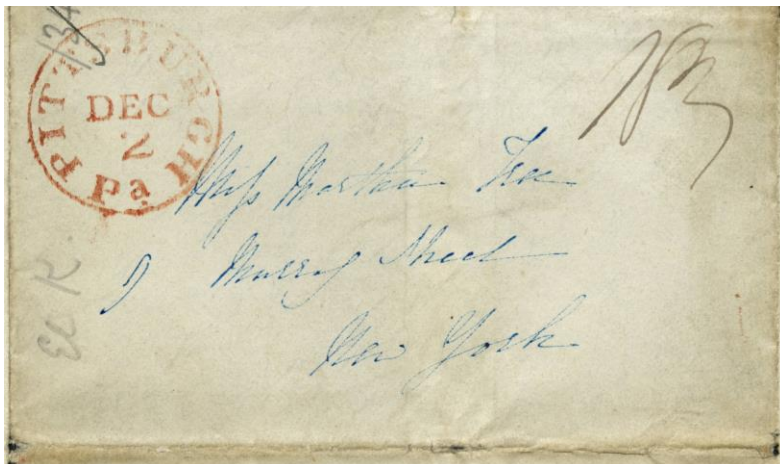 PITTSBURGH
DEC
2
Pa
Miss Martha
9 Murray Street
New York